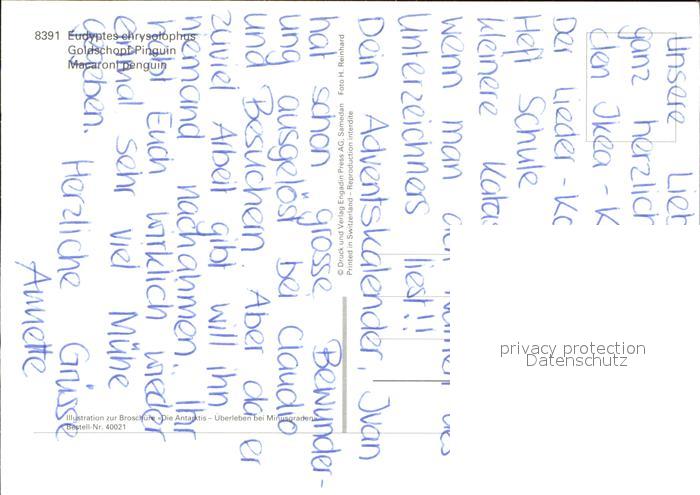 8391 Eudyptes chrysolophus
Goldschopf-Pinguin
Macaroni penguin
© Druck und Verlag Engadin Press AG, Samedan Foto H. Reinhard
Printed in Switzerland – Reproduction interdite
Illustration zur Broschüre «Die Antarktis – Überleben bei Minusgraden»
Bestell-Nr. 40021
Unsere Lieb
ganz herzlich
den Ikea - K
Der Lieder - Ka
Heft Schule
kleinere Kata
wenn man den
Unterzeichners liest!!!
Dein Adventskalender, Ivan
hat schon grosse Bewunder-
ung ausgelöst bei Claudio
und Besuchern. Aber da er
zuviel Arbeit gibt will ihn
niemand nachahmen. Ihr
habt Euch wirklich wieder
einmal sehr viel Mühe
gegeben. Herzliche Grüsse
Annette
privacy protection
Datenschutz